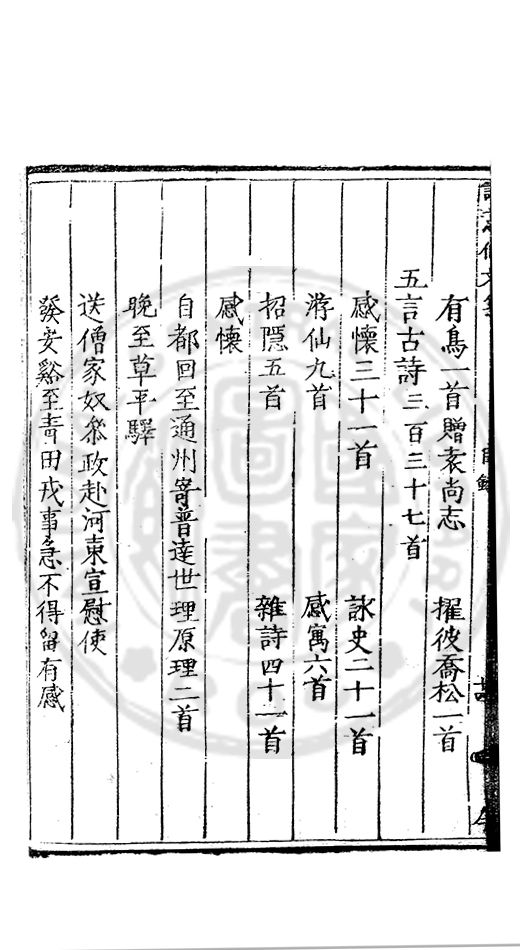 有鳥一首贈袁尚志 擢彼喬松一首
五言古詩三百三十七首
感懷三十一首 詠史二十一首
游仙九首 感寓六首
招隱五首 雜詩四十一首
感懷
自都回至通州寄普達世理原理二首
晚至草平驛
送僧家奴叅政赴河東宣慰使
發安谿至青田戎事急不得留有感